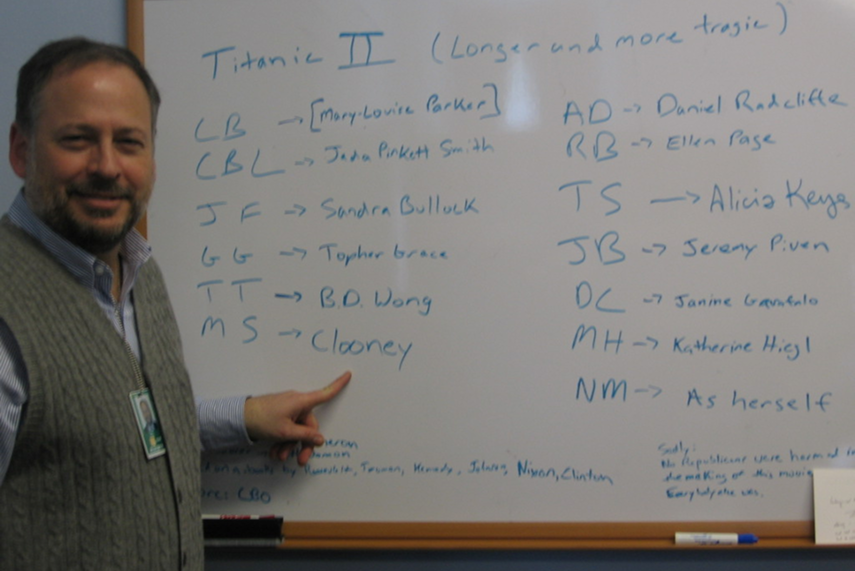 Titanic II (Longer and more tragic)
CB → [Mary-Louise Parker]
CBL → Jada Pinkett Smith
JF → Sandra Bullock
GG → Topher Grace
TT → B.D. Wong
MS → Clooney
AD → Daniel Radcliffe
RB → Ellen Page
TS → Alicia Keys
JB → Jeremy Piven
DC → Janine Garofalo
MH → Katherine Hiegl
NM → As herself
by Roosevelt, Truman, Kennedy, Johnson, Nixon, Clinton
CBO
Sadly:
No Republicans were harmed in
the making of this movie
Everybody else was.